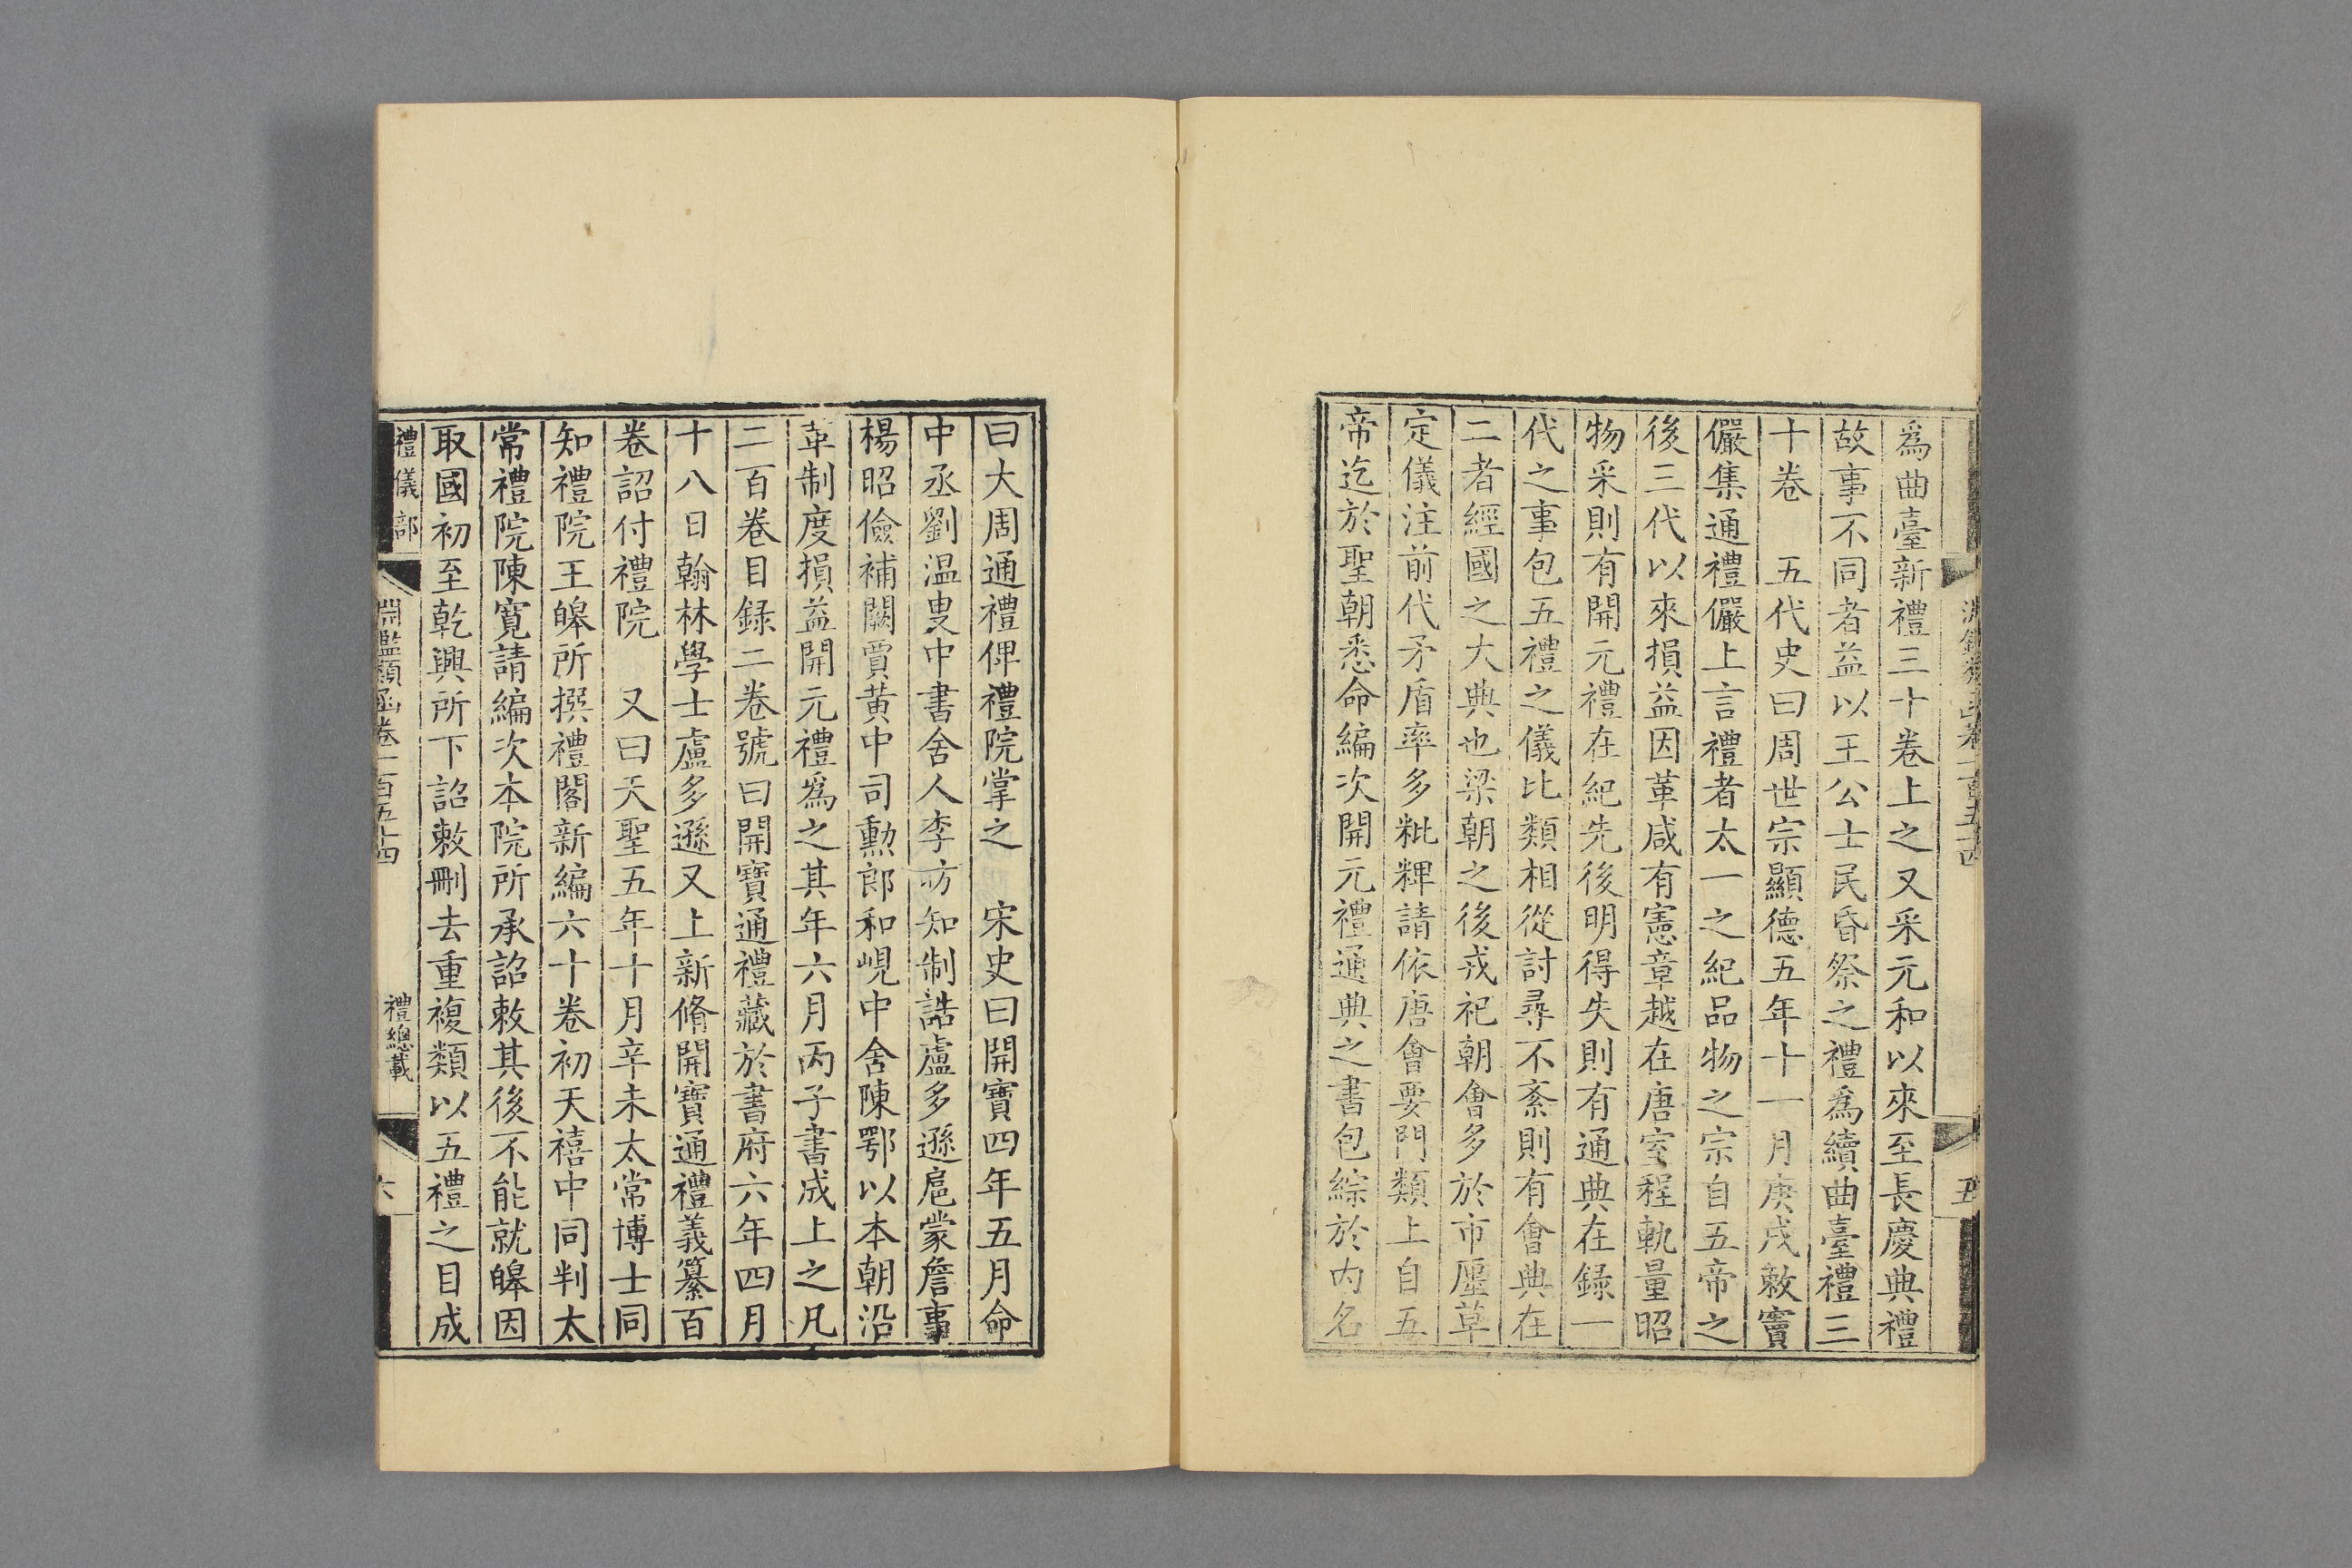 淵鑑類函卷一百五十四
五
爲曲臺新禮三十卷上之又采元和以來至長慶典禮
故事不同者益以王公士民昏祭之禮爲續曲臺禮三
十卷　五代史曰周世宗顯德五年十一月庚戌敕竇
儼集通禮儼上言禮者太一之紀品物之宗自五帝之
後三代以來損益因革咸有憲章越在唐室程軌量昭
物采則有開元禮在紀先後明得失則有通典在録一
代之事包五禮之儀比類相從討尋不紊則有會典在
二者經國之大典也梁朝之後戎祀朝會多於市廛草
定儀注前代矛盾率多粃粺請依唐會要門類上自五
帝迄於聖朝悉命編次開元禮通典之書包綜於内名
曰大周通禮俾禮院掌之　宋史曰開寶四年五月命
中丞劉温叟中書舍人李昉知制誥盧多遜扈蒙詹事
楊昭儉補闕賈黄中司勲郎和峴中舍陳鄂以本朝沿
革制度損益開元禮爲之其年六月丙子書成上之凡
二百卷目録二卷號曰開寶通禮藏於書府六年四月
十八日翰林學士盧多遜又上新脩開寶通禮義纂百
卷詔付禮院　又曰天聖五年十月辛未太常博士同
知禮院王皥所撰禮閣新編六十卷初天禧中同判太
常禮院陳寬請編次本院所承詔敕其後不能就皥因
取國初至乾興所下詔敕刪去重複類以五禮之目成
禮儀部
淵鑑類函卷一百五十四
禮總載
六